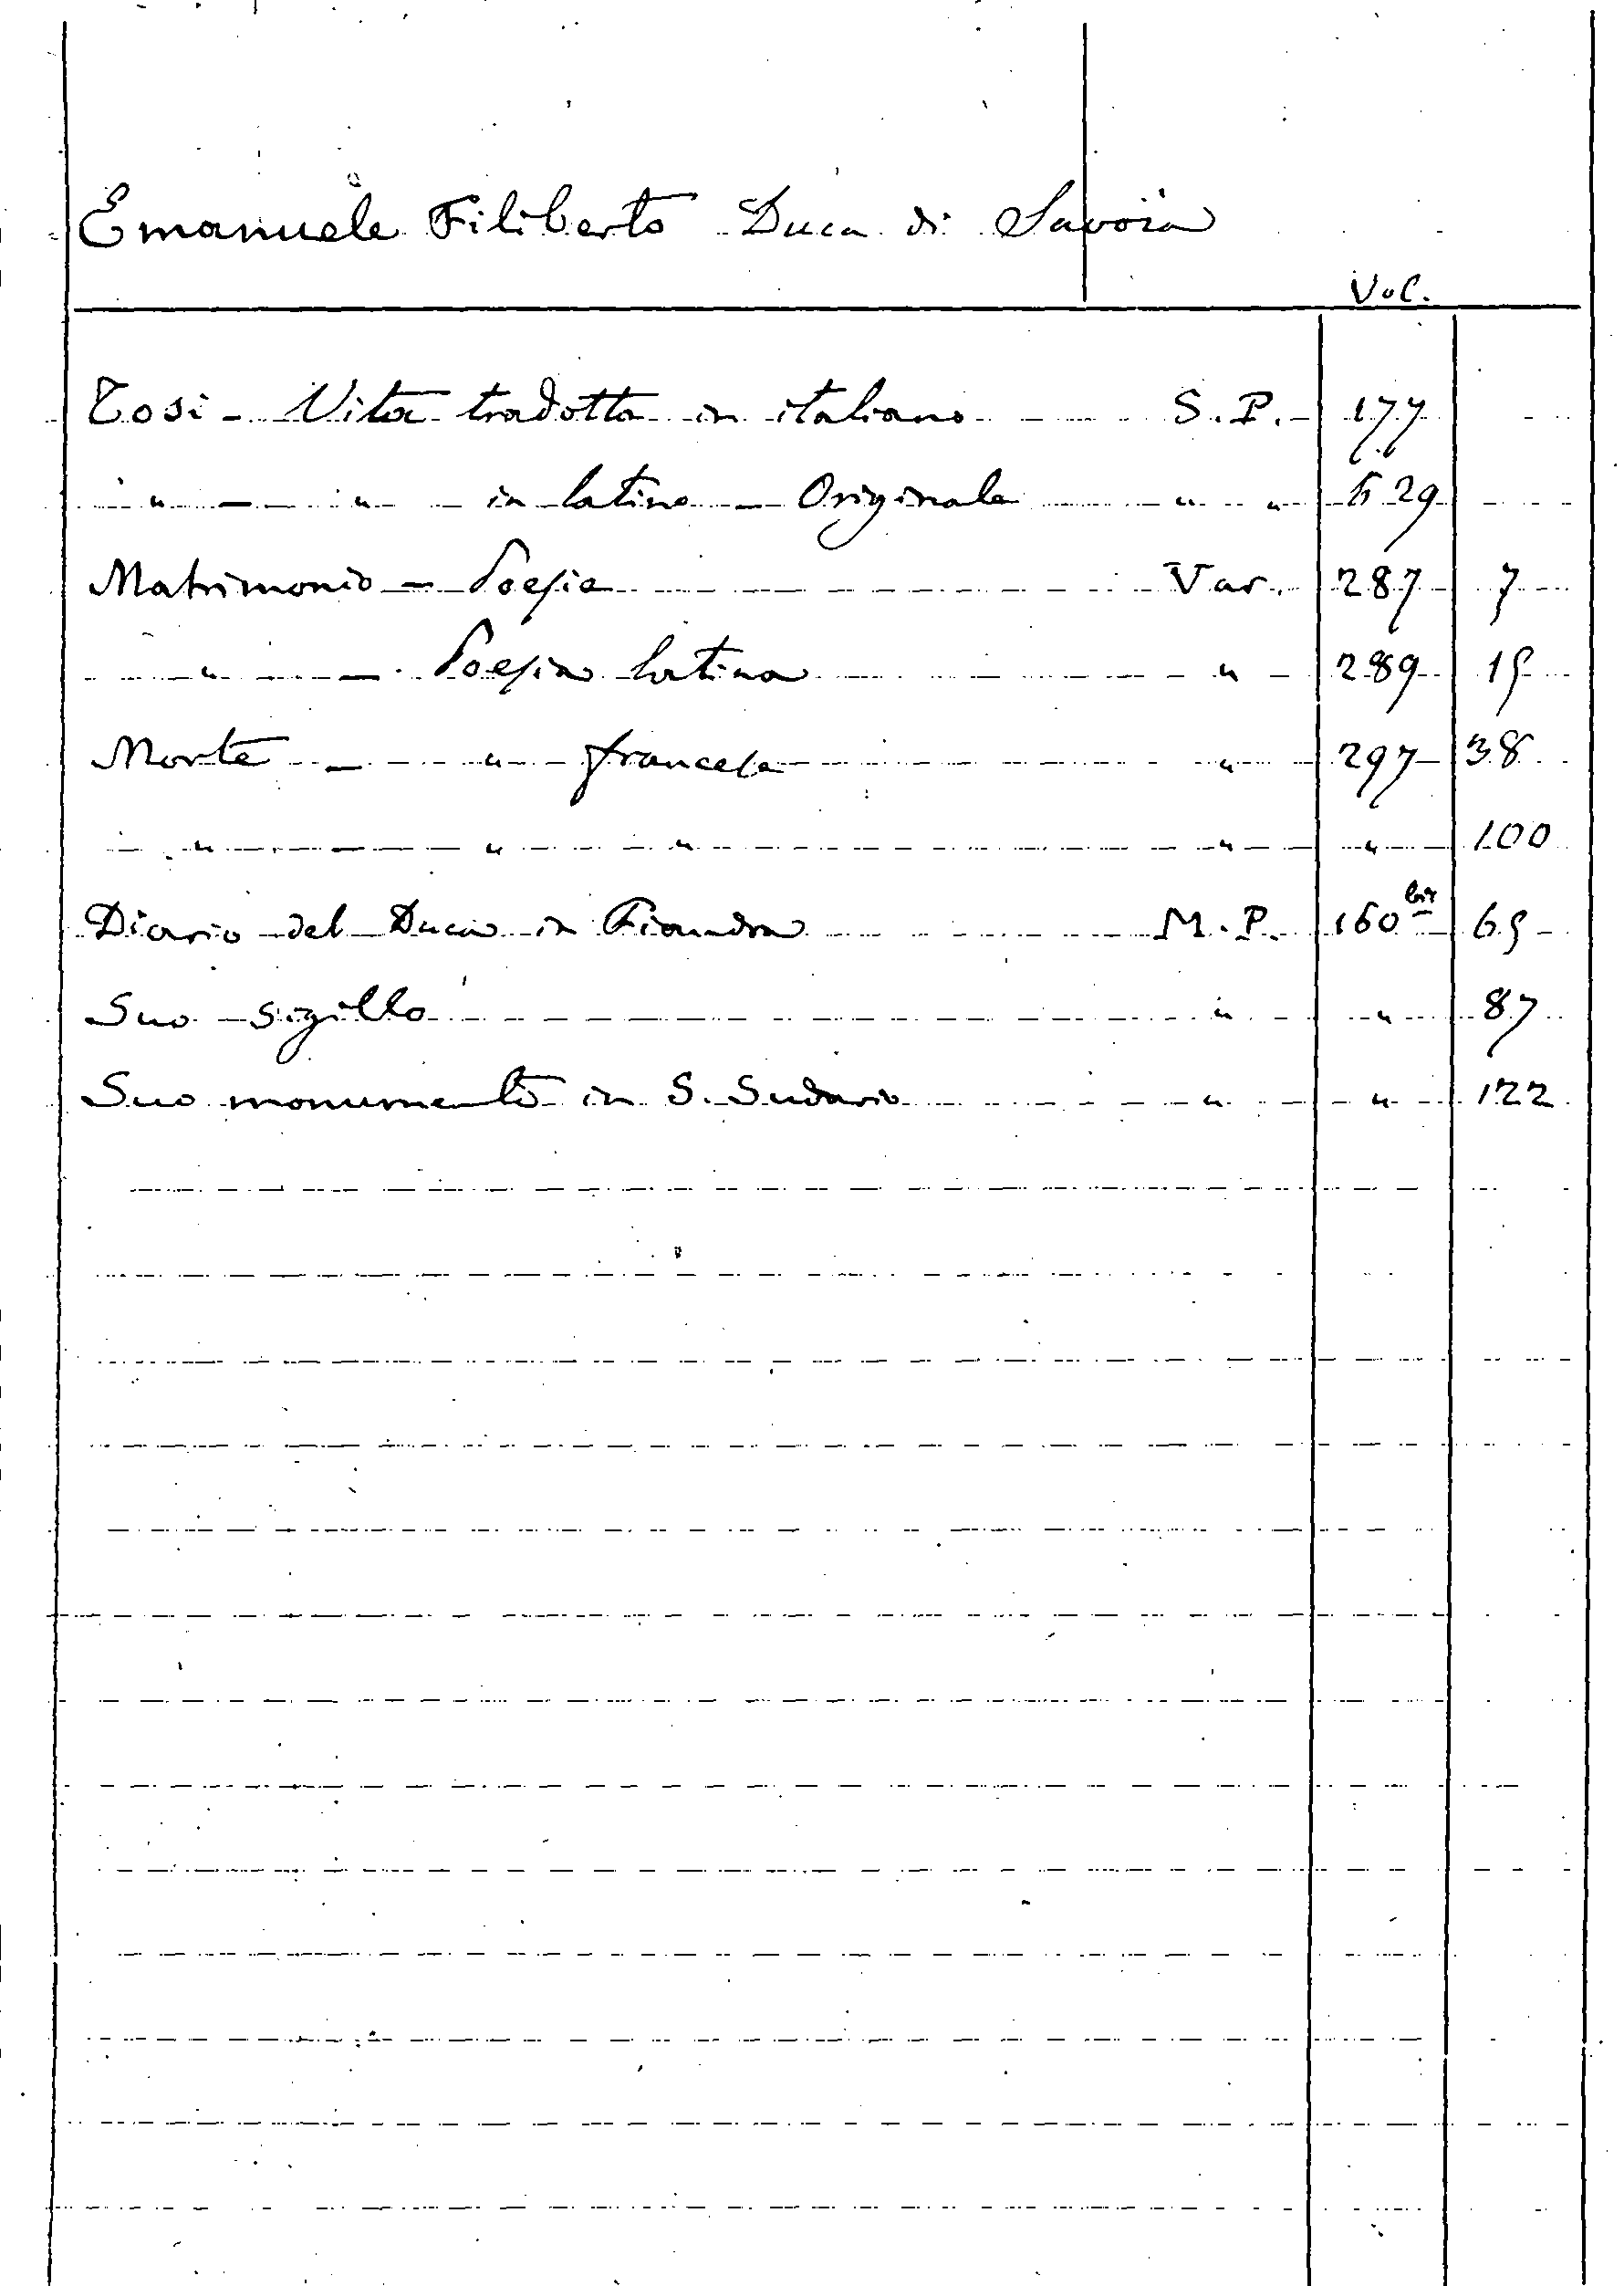 Emanuele Filiberto Duca di Savoia
Vol.
Tosi - Vita tradotta in italiano S. P. 177
" - " in latino - Originale " " 629
Matrimonio - Poesia Var. 287 7
" - Poesia latina " 289 15
Morte - " francese " 297 38
" - " " " " 100
Diario del Duca in Fiandra M. P. 160 bis 65
Suo sigillo " " 87
Suo monumento in S. Sudario " " 122